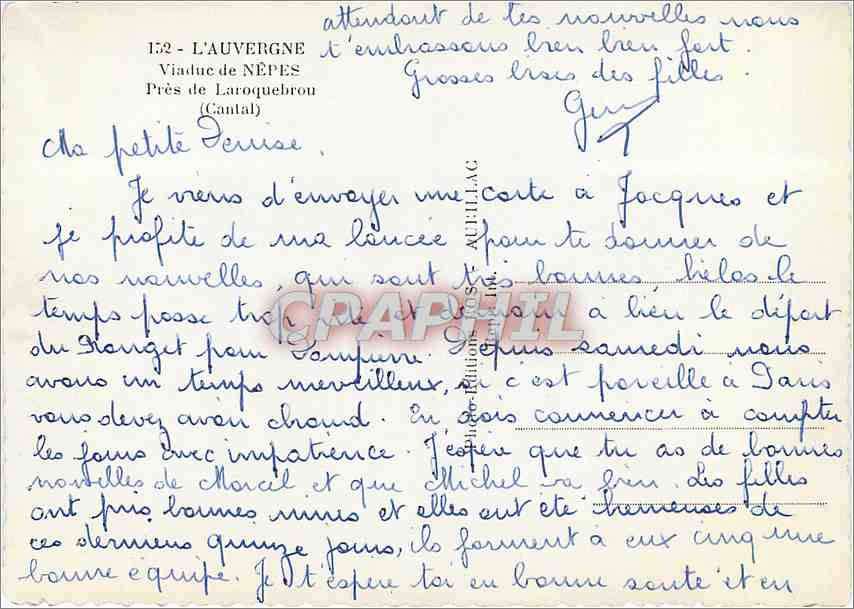 152 - L'AUVERGNE
Viaduc de NÊPES
Près de Laroquebrou
(Cantal)
Ma petite Denise.
Je viens d'envoyer une carte à Jacques et
je profite de ma lancée pour te donner de
nos nouvelles, qui sont très bonnes, hélas le
temps passe trop vite et demain à lieu le départ
du Rouget pour Dompierre. Depuis samedi nous
avons un temps merveilleux, si c'est pareille à Paris
vous devez avoir chaud. En dois commencer à compter
les jours avec impatience. J'espère que tu as de bonnes
nouvelles de Marcel et que Michel va bien. Les filles
ont pris bonnes mines et elles ont été heureuses de
ces derniers quinze jours, ils forment à eux cinq une
bonne équipe. Je t'espère toi en bonne santé et en
attendant de tes nouvelles nous
t'embrassons bien bien fort.
Grosses bises des filles.
Photo-Éditions ROS, AURILLAC
CPAPHIL